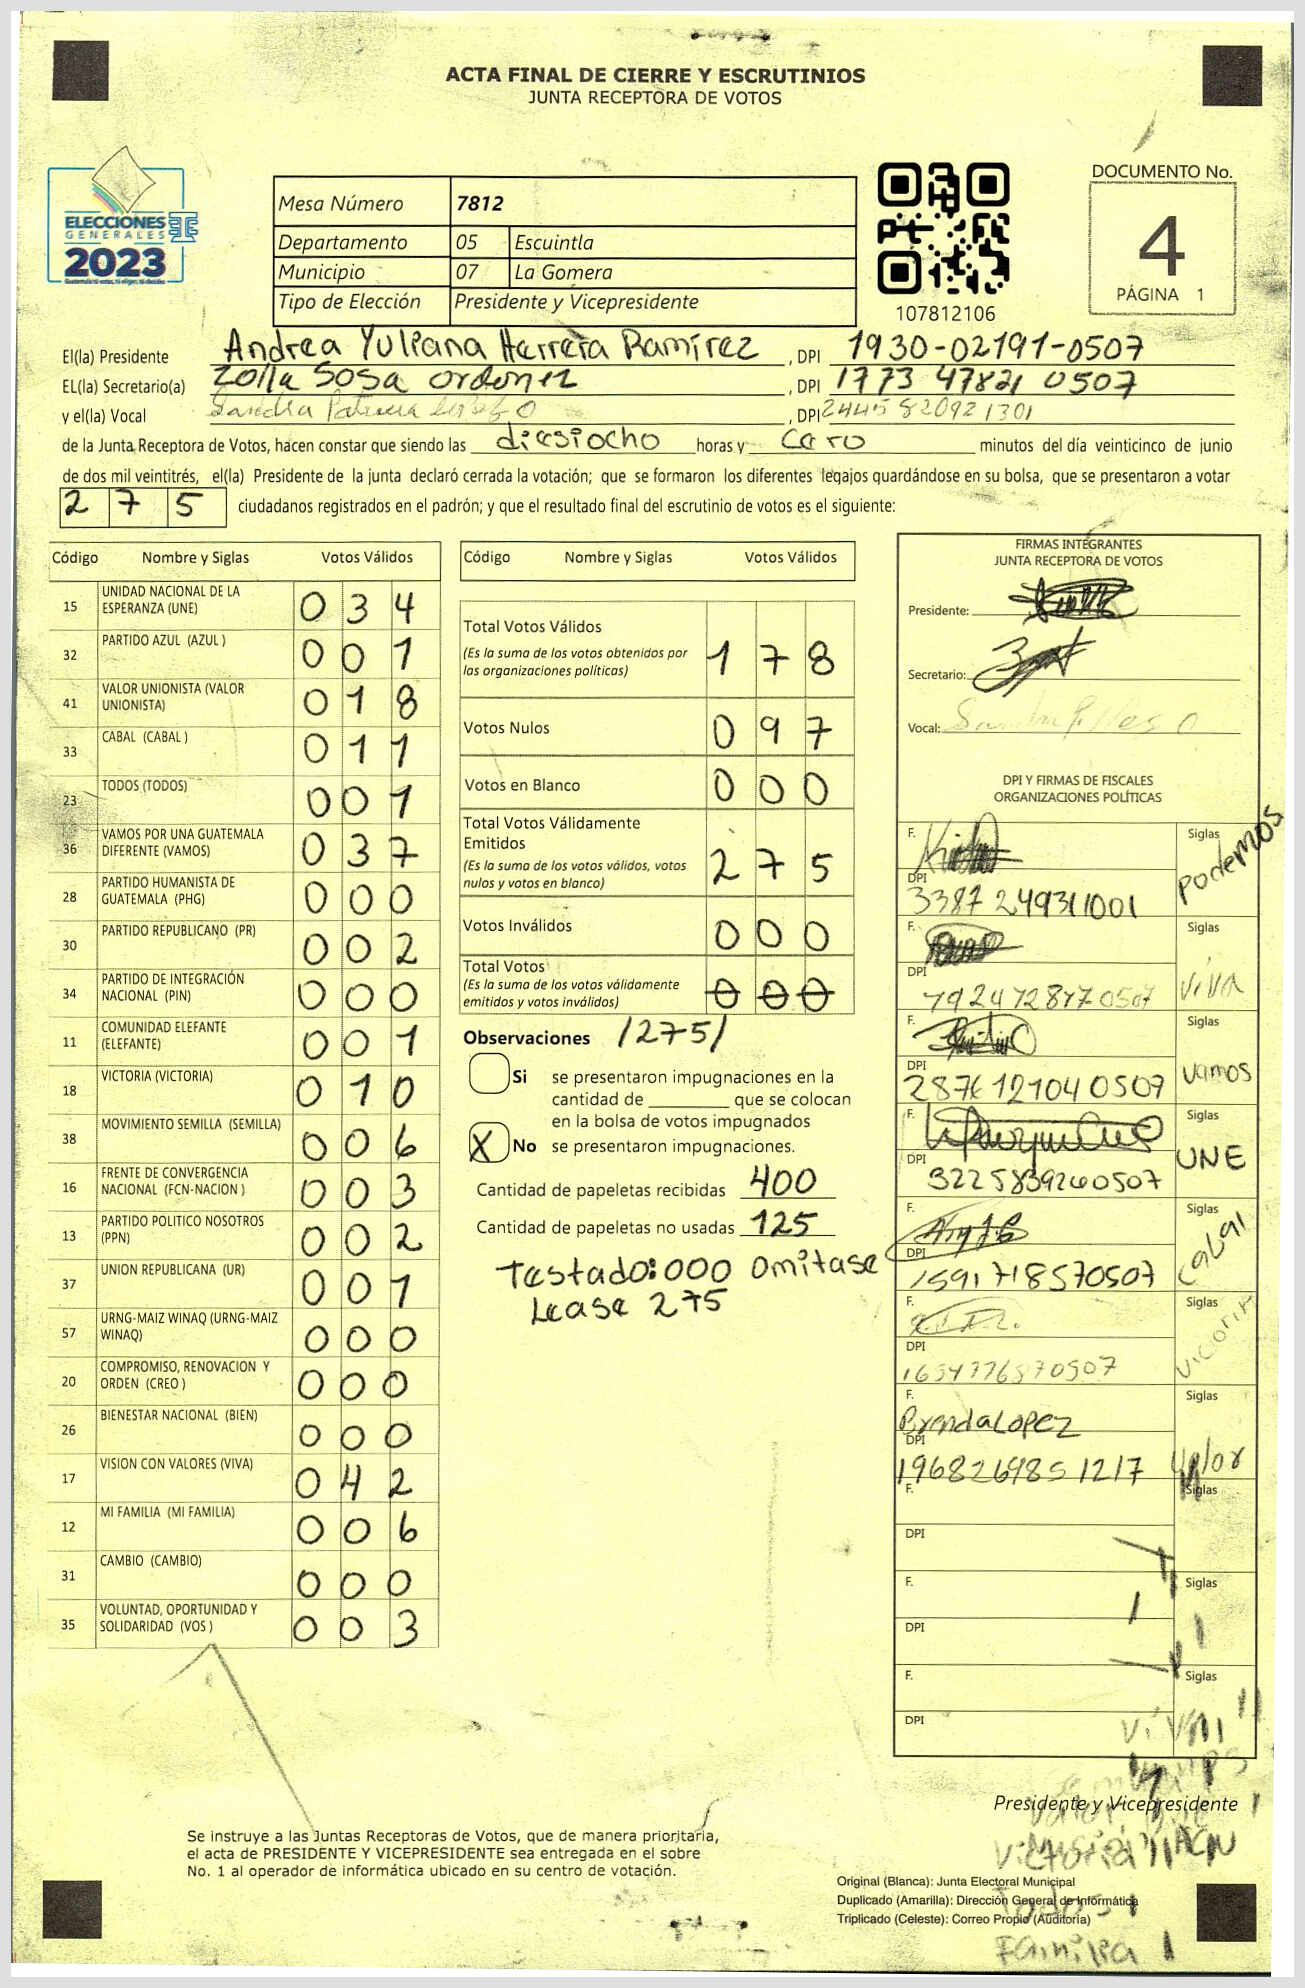 ACTA FINAL DE CIERRE Y ESCRUTINIOS
JUNTA RECEPTORA DE VOTOS
ELECCIONES
GENERALES
2023
Mesa Número 7812
Departamento 05 Escuintla
Municipio 07 La Gomera
Tipo de Elección Presidente y Vicepresidente
107812106
DOCUMENTO No.
4
PÁGINA 1
El(la) Presidente Andrea Yuliana Herrera Ramirez , DPI 1930-02191-0507
EL(la) Secretario(a) Zoila Sosa Ordoñez , DPI 1773 47821 0507
y el(la) Vocal Sandra Patricia , DPI 2445 82092 1301
de la Junta Receptora de Votos, hacen constar que siendo las diesiocho horas y cero minutos del día veinticinco de junio
de dos mil veintitrés, el(la) Presidente de la junta declaró cerrada la votación; que se formaron los diferentes legajos guardándose en su bolsa, que se presentaron a votar
2 7 5 ciudadanos registrados en el padrón; y que el resultado final del escrutinio de votos es el siguiente:
Código Nombre y Siglas Votos Válidos
15 UNIDAD NACIONAL DE LA ESPERANZA (UNE) 0 3 4
32 PARTIDO AZUL (AZUL ) 0 0 1
41 VALOR UNIONISTA (VALOR UNIONISTA) 0 1 8
33 CABAL (CABAL ) 0 1 1
23 TODOS (TODOS) 0 0 1
36 VAMOS POR UNA GUATEMALA DIFERENTE (VAMOS) 0 3 7
28 PARTIDO HUMANISTA DE GUATEMALA (PHG) 0 0 0
30 PARTIDO REPUBLICANO (PR) 0 0 2
34 PARTIDO DE INTEGRACIÓN NACIONAL (PIN) 0 0 0
11 COMUNIDAD ELEFANTE (ELEFANTE) 0 0 1
18 VICTORIA (VICTORIA) 0 1 0
38 MOVIMIENTO SEMILLA (SEMILLA) 0 0 6
16 FRENTE DE CONVERGENCIA NACIONAL (FCN-NACION ) 0 0 3
13 PARTIDO POLITICO NOSOTROS (PPN) 0 0 2
37 UNION REPUBLICANA (UR) 0 0 1
57 URNG-MAIZ WINAQ (URNG-MAIZ WINAQ) 0 0 0
20 COMPROMISO, RENOVACION Y ORDEN (CREO ) 0 0 0
26 BIENESTAR NACIONAL (BIEN) 0 0 0
17 VISION CON VALORES (VIVA) 0 4 2
12 MI FAMILIA (MI FAMILIA) 0 0 6
31 CAMBIO (CAMBIO) 0 0 0
35 VOLUNTAD, OPORTUNIDAD Y SOLIDARIDAD (VOS ) 0 0 3
Código Nombre y Siglas Votos Válidos
Total Votos Válidos
(Es la suma de los votos obtenidos por las organizaciones políticas) 1 7 8
Votos Nulos 0 9 7
Votos en Blanco 0 0 0
Total Votos Válidamente Emitidos
(Es la suma de los votos válidos, votos nulos y votos en blanco) 2 7 5
Votos Inválidos 0 0 0
Total Votos
(Es la suma de los votos válidamente emitidos y votos inválidos) 0 0 0
Observaciones /275/
Si se presentaron impugnaciones en la
cantidad de ________ que se colocan
en la bolsa de votos impugnados
X No se presentaron impugnaciones.
Cantidad de papeletas recibidas 400
Cantidad de papeletas no usadas 125
Testado: 000 Omitase
Lease 275
FIRMAS INTEGRANTES
JUNTA RECEPTORA DE VOTOS
Presidente:
Secretario:
Vocal:
DPI Y FIRMAS DE FISCALES
ORGANIZACIONES POLÍTICAS
F. Siglas podemos
DPI 3387 249311001
F. Siglas viva
DPI
F. Siglas vamos
DPI 2876121040507
F. Siglas UNE
DPI 3225839260507
F. Siglas Cabal
DPI 1591718570507
F. Siglas Victoria
DPI
F. Brenda Lopez Siglas Valor
DPI 1968269851217
F. Siglas
DPI
F. Siglas
DPI
F. Siglas
DPI
Presidente y Vicepresidente
Todos 1
Familia 1
Se instruye a las Juntas Receptoras de Votos, que de manera prioritaria,
el acta de PRESIDENTE Y VICEPRESIDENTE sea entregada en el sobre
No. 1 al operador de informática ubicado en su centro de votación.
Original (Blanca): Junta Electoral Municipal
Duplicado (Amarilla): Dirección General de Informática
Triplicado (Celeste): Correo Propio (Auditoría)